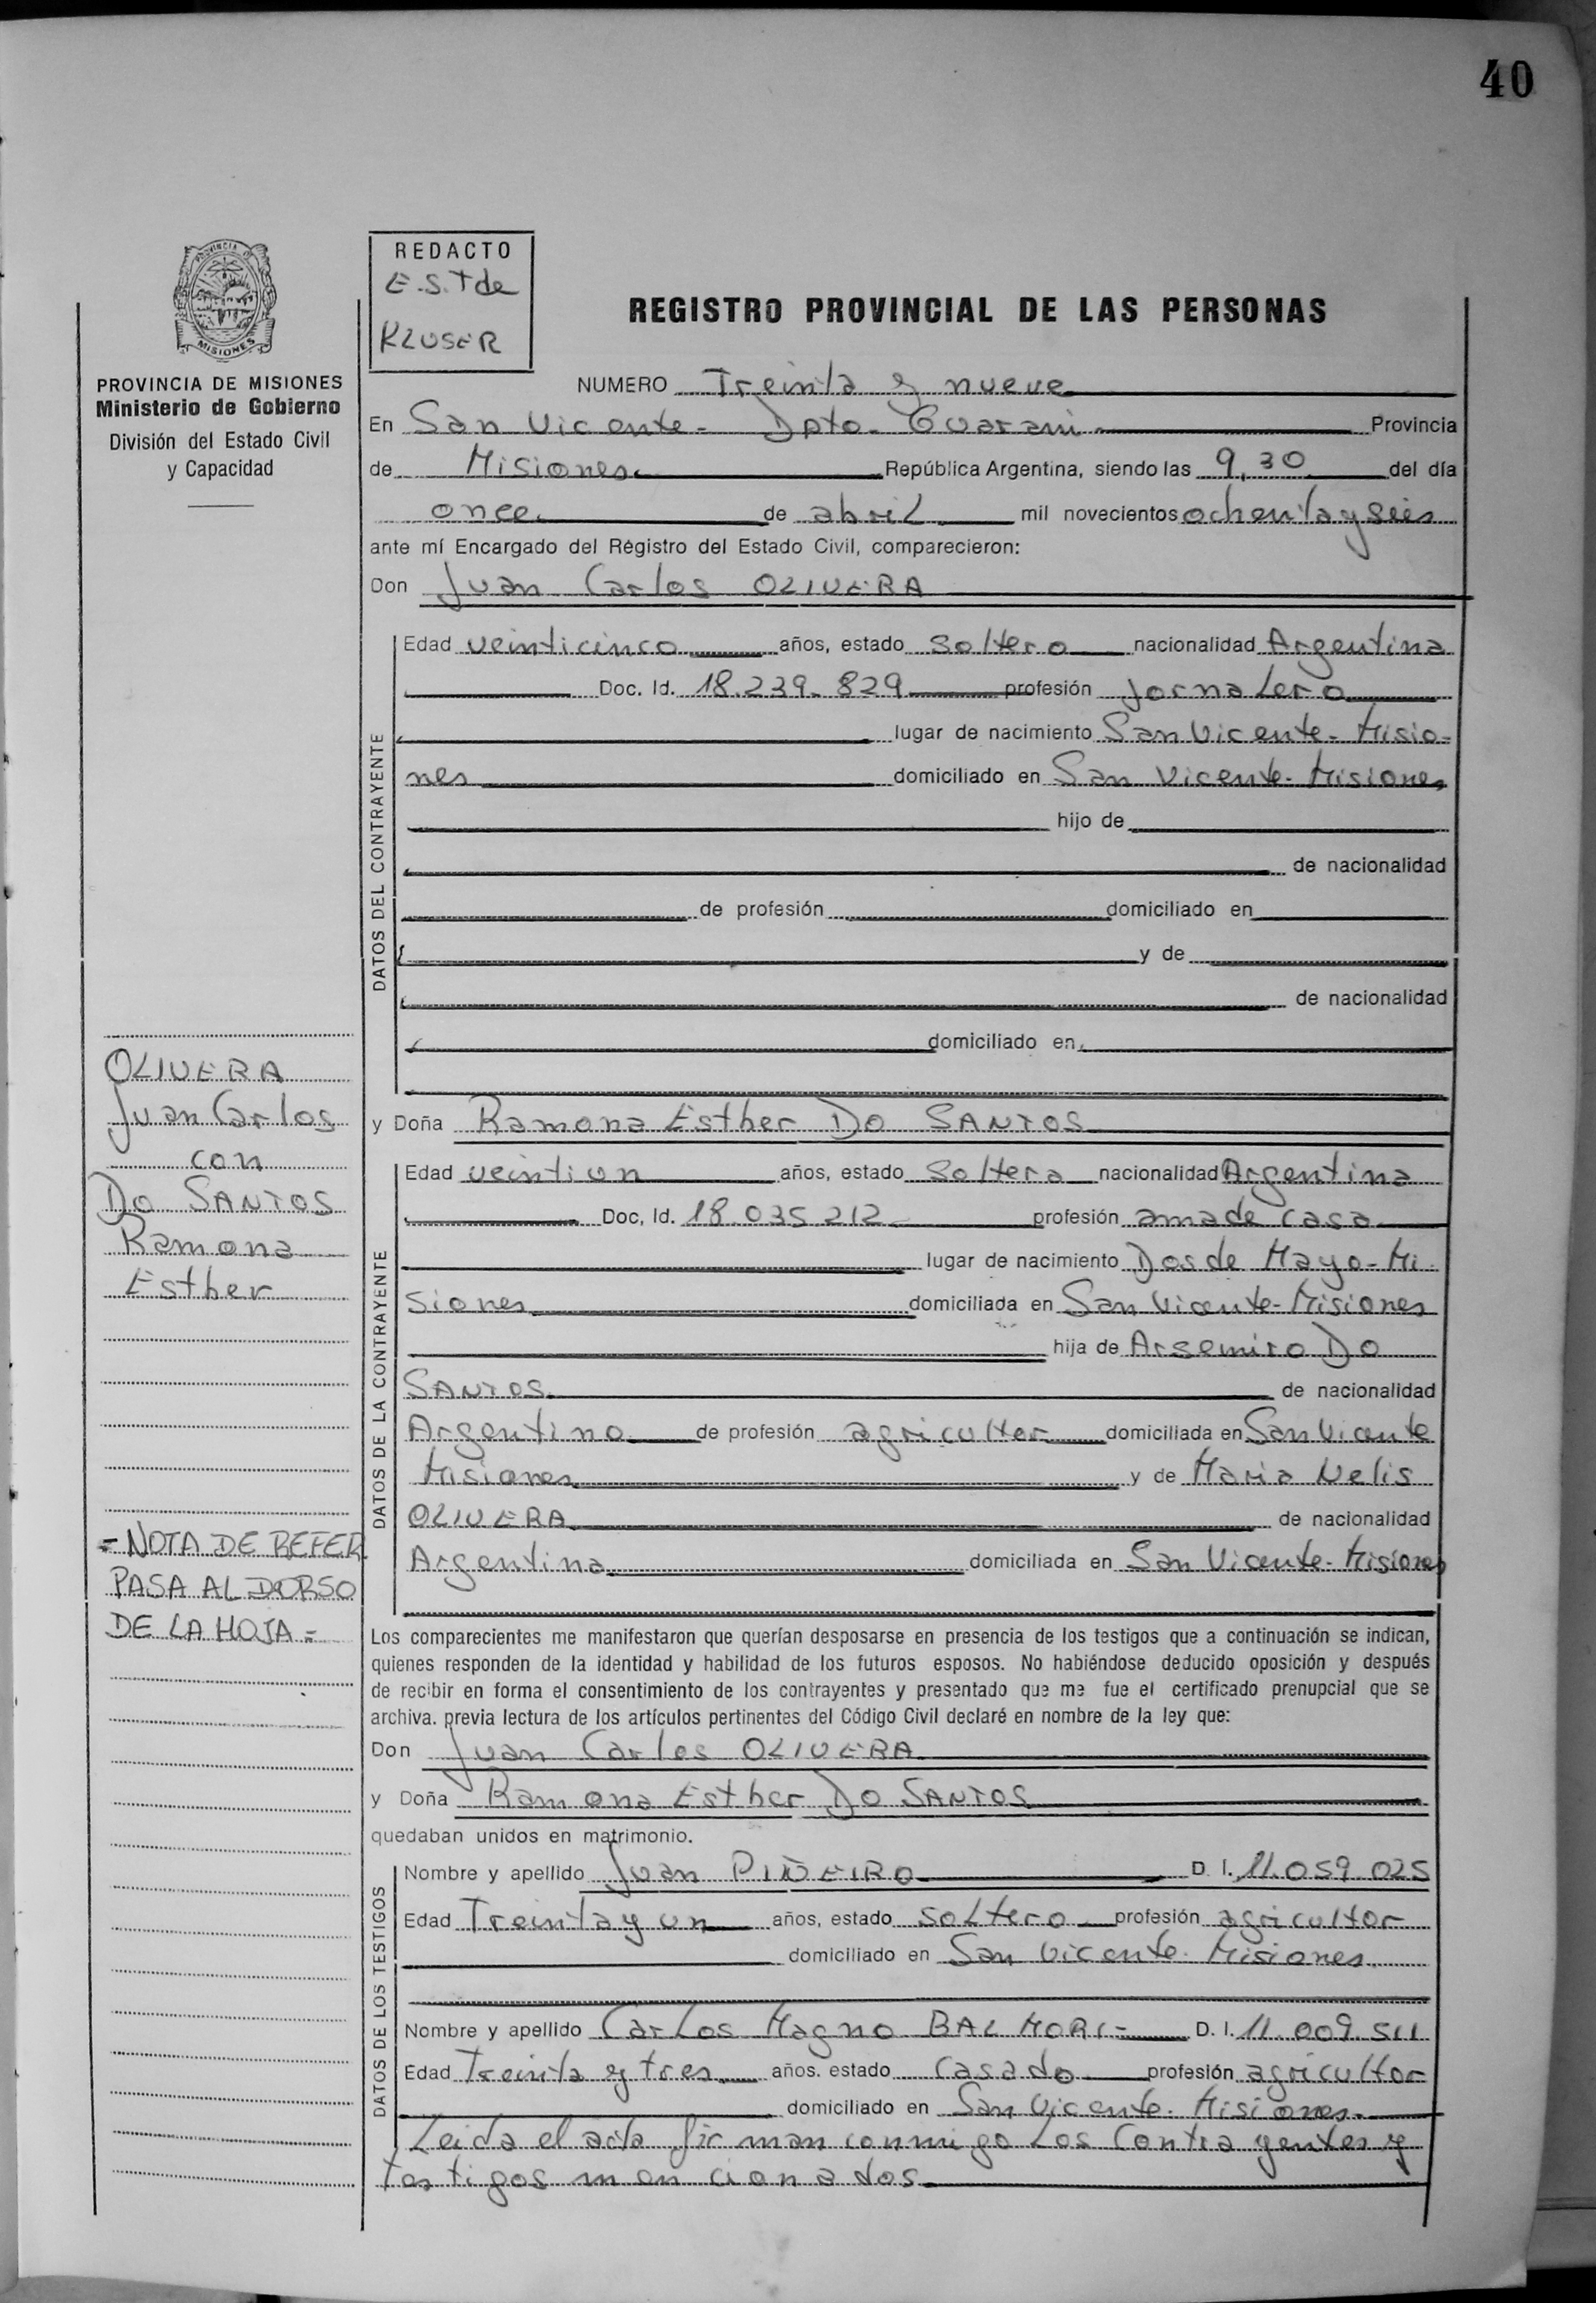 40
PROVINCIA
MISIONES
PROVINCIA DE MISIONES
Ministerio de Gobierno
División del Estado Civil
y Capacidad
REDACTO
E.S.T de
KLUSER
REGISTRO PROVINCIAL DE LAS PERSONAS
NUMERO Treinta y nueve
En San Vicente - Dpto. Guarani Provincia
de Misiones República Argentina, siendo las 9,30 del día
once de abril mil novecientos ochenta y seis
ante mí Encargado del Registro del Estado Civil, comparecieron:
Don Juan Carlos OLIVERA
DATOS DEL CONTRAYENTE
Edad veinticinco años, estado soltero nacionalidad Argentina
Doc. Id. 18.239.829 profesión jornalero
lugar de nacimiento San Vicente - Misio-
nes domiciliado en San Vicente - Misiones
hijo de
de nacionalidad
de profesión domiciliado en
y de
de nacionalidad
domiciliado en
y Doña Ramona Esther Do SANTOS
DATOS DE LA CONTRAYENTE
Edad veintiun años, estado soltera nacionalidad Argentina
Doc, Id. 18.035.212 profesión ama de casa
lugar de nacimiento Dos de Mayo - Mi-
siones domiciliada en San Vicente - Misiones
hija de Arsemiro Do
SANTOS de nacionalidad
Argentino de profesión agricultor domiciliada en San Vicente
Misiones y de Maria Nelis
OLIVERA de nacionalidad
Argentina domiciliada en San Vicente - Misiones
OLIVERA
Juan Carlos
con
Do SANTOS
Ramona
Esther
=NOTA DE REFER
PASA AL DORSO
DE LA HOJA=
Los comparecientes me manifestaron que querían desposarse en presencia de los testigos que a continuación se indican,
quienes responden de la identidad y habilidad de los futuros esposos. No habiéndose deducido oposición y después
de recibir en forma el consentimiento de los contrayentes y presentado que me fue el certificado prenupcial que se
archiva. previa lectura de los artículos pertinentes del Código Civil declaré en nombre de la ley que:
Don Juan Carlos OLIVERA
y Doña Ramona Esther Do SANTOS
quedaban unidos en matrimonio.
DATOS DE LOS TESTIGOS
Nombre y apellido Juan PIÑEIRO D. I. 11.059.025
Edad Treinta y un años, estado soltero profesión agricultor
domiciliado en San Vicente - Misiones
Nombre y apellido Carlos Magno BALMORI - D. I. 11.009.511
Edad Treinta y tres años. estado casado profesión agricultor
domiciliado en San Vicente - Misiones
Leida el acta firman conmigo los contrayentes y
testigos mencionados